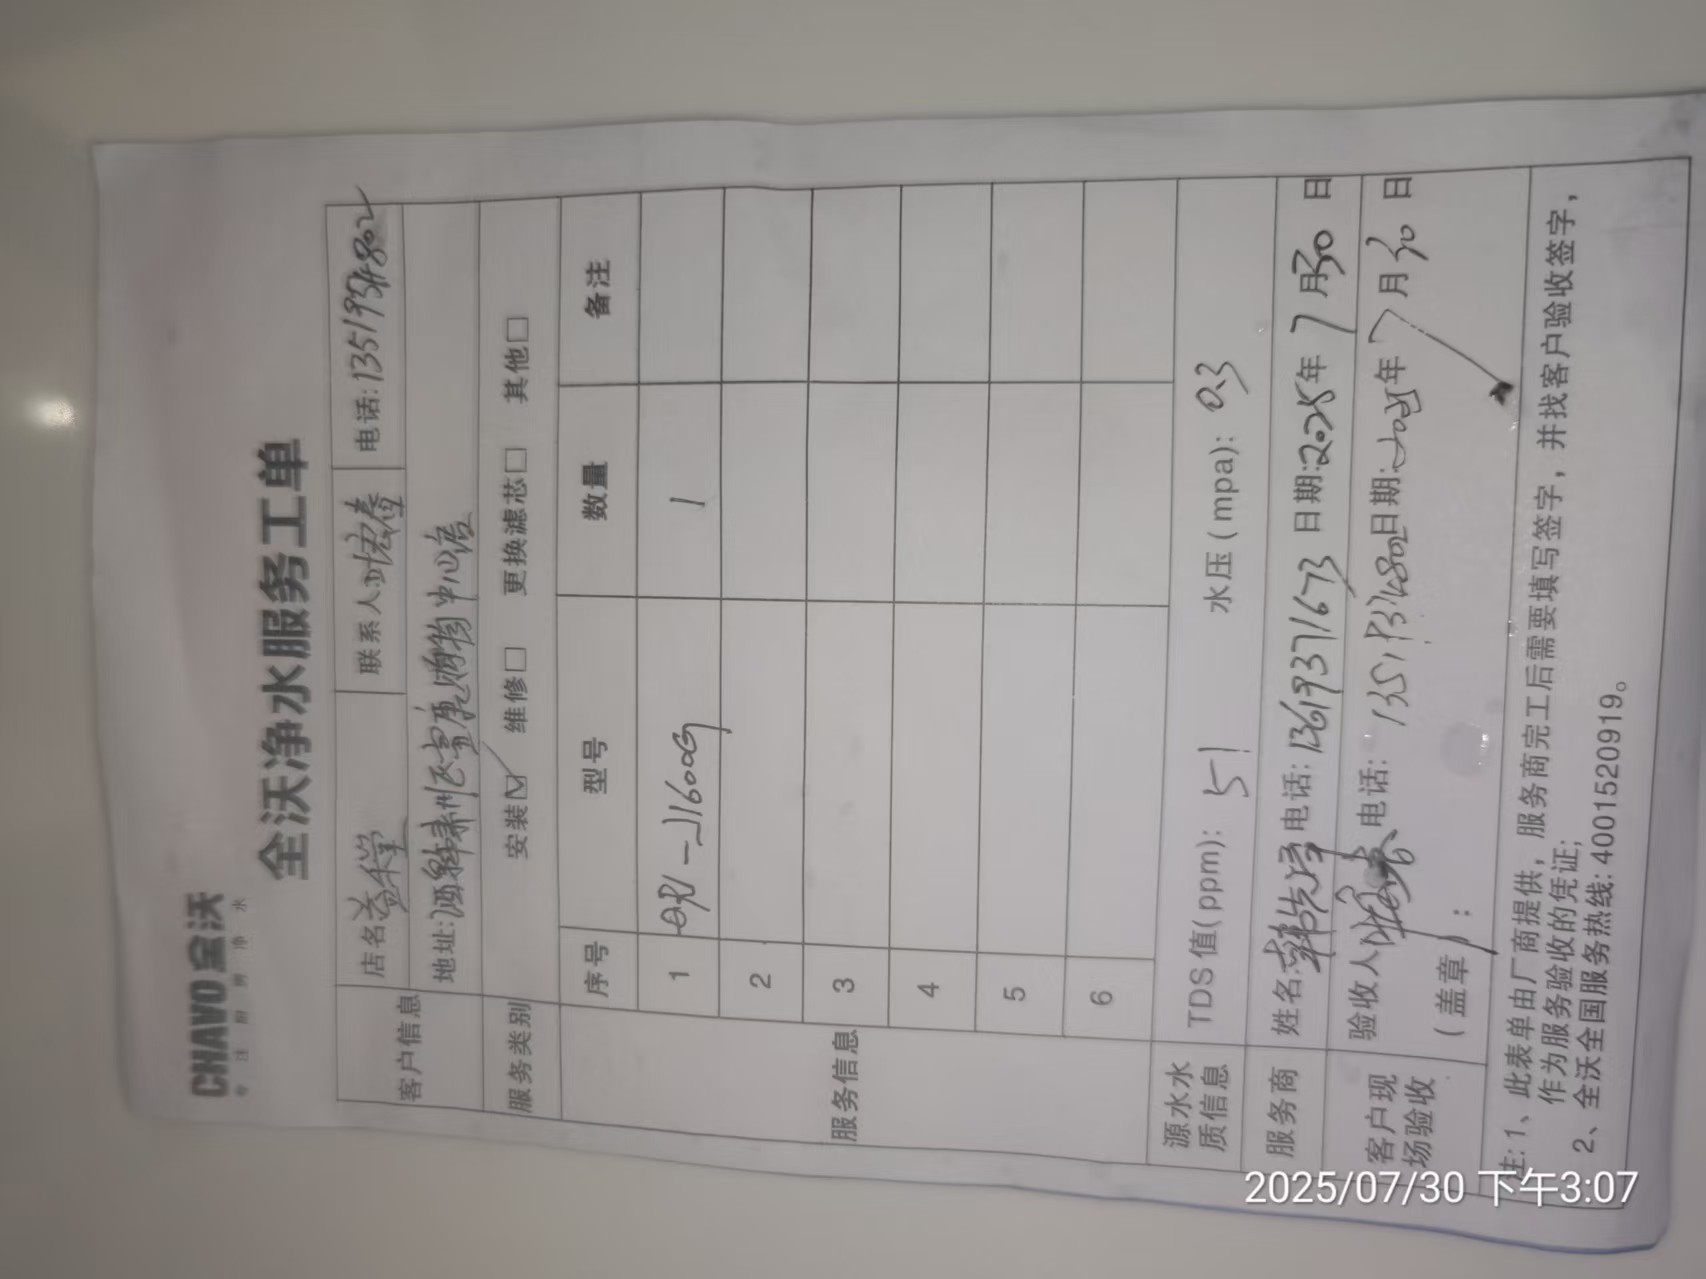 CHAVO 全沃
专注厨房净水
全沃净水服务工单
客户信息 店名 联系人 电话:
地址: 肃州区富康购物中心店
服务类别 安装☑ 维修□ 更换滤芯□ 其他□
服务信息 序号 型号 数量 备注
1 1
2
3
4
5
6
源水水质信息 TDS值(ppm): 51 水压(mpa): 0.3
服务商 姓名: 电话: 13619371673 日期:2025年7月30日
客户现场验收 验收人 电话: 日期:2025年7月30日
(盖章):
注:1、此表单由厂商提供,服务商完工后需要填写签字,并找客户验收签字,
作为服务验收的凭证;
2、全沃全国服务热线:4001520919。
2025/07/30 下午3:07